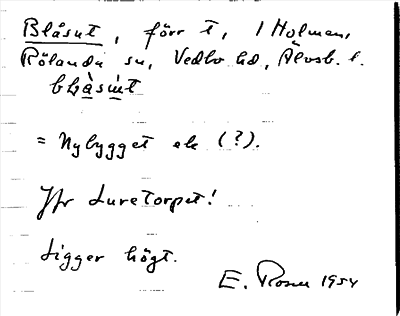 Blåsut, förr t, 1 Holmen,
Rölanda sn, Vedbo hd, Älvsb. l.
blàsút
= Nybygget ek (?).
Jfr Luretorpet!
Ligger högt.
E. Rosen 1954